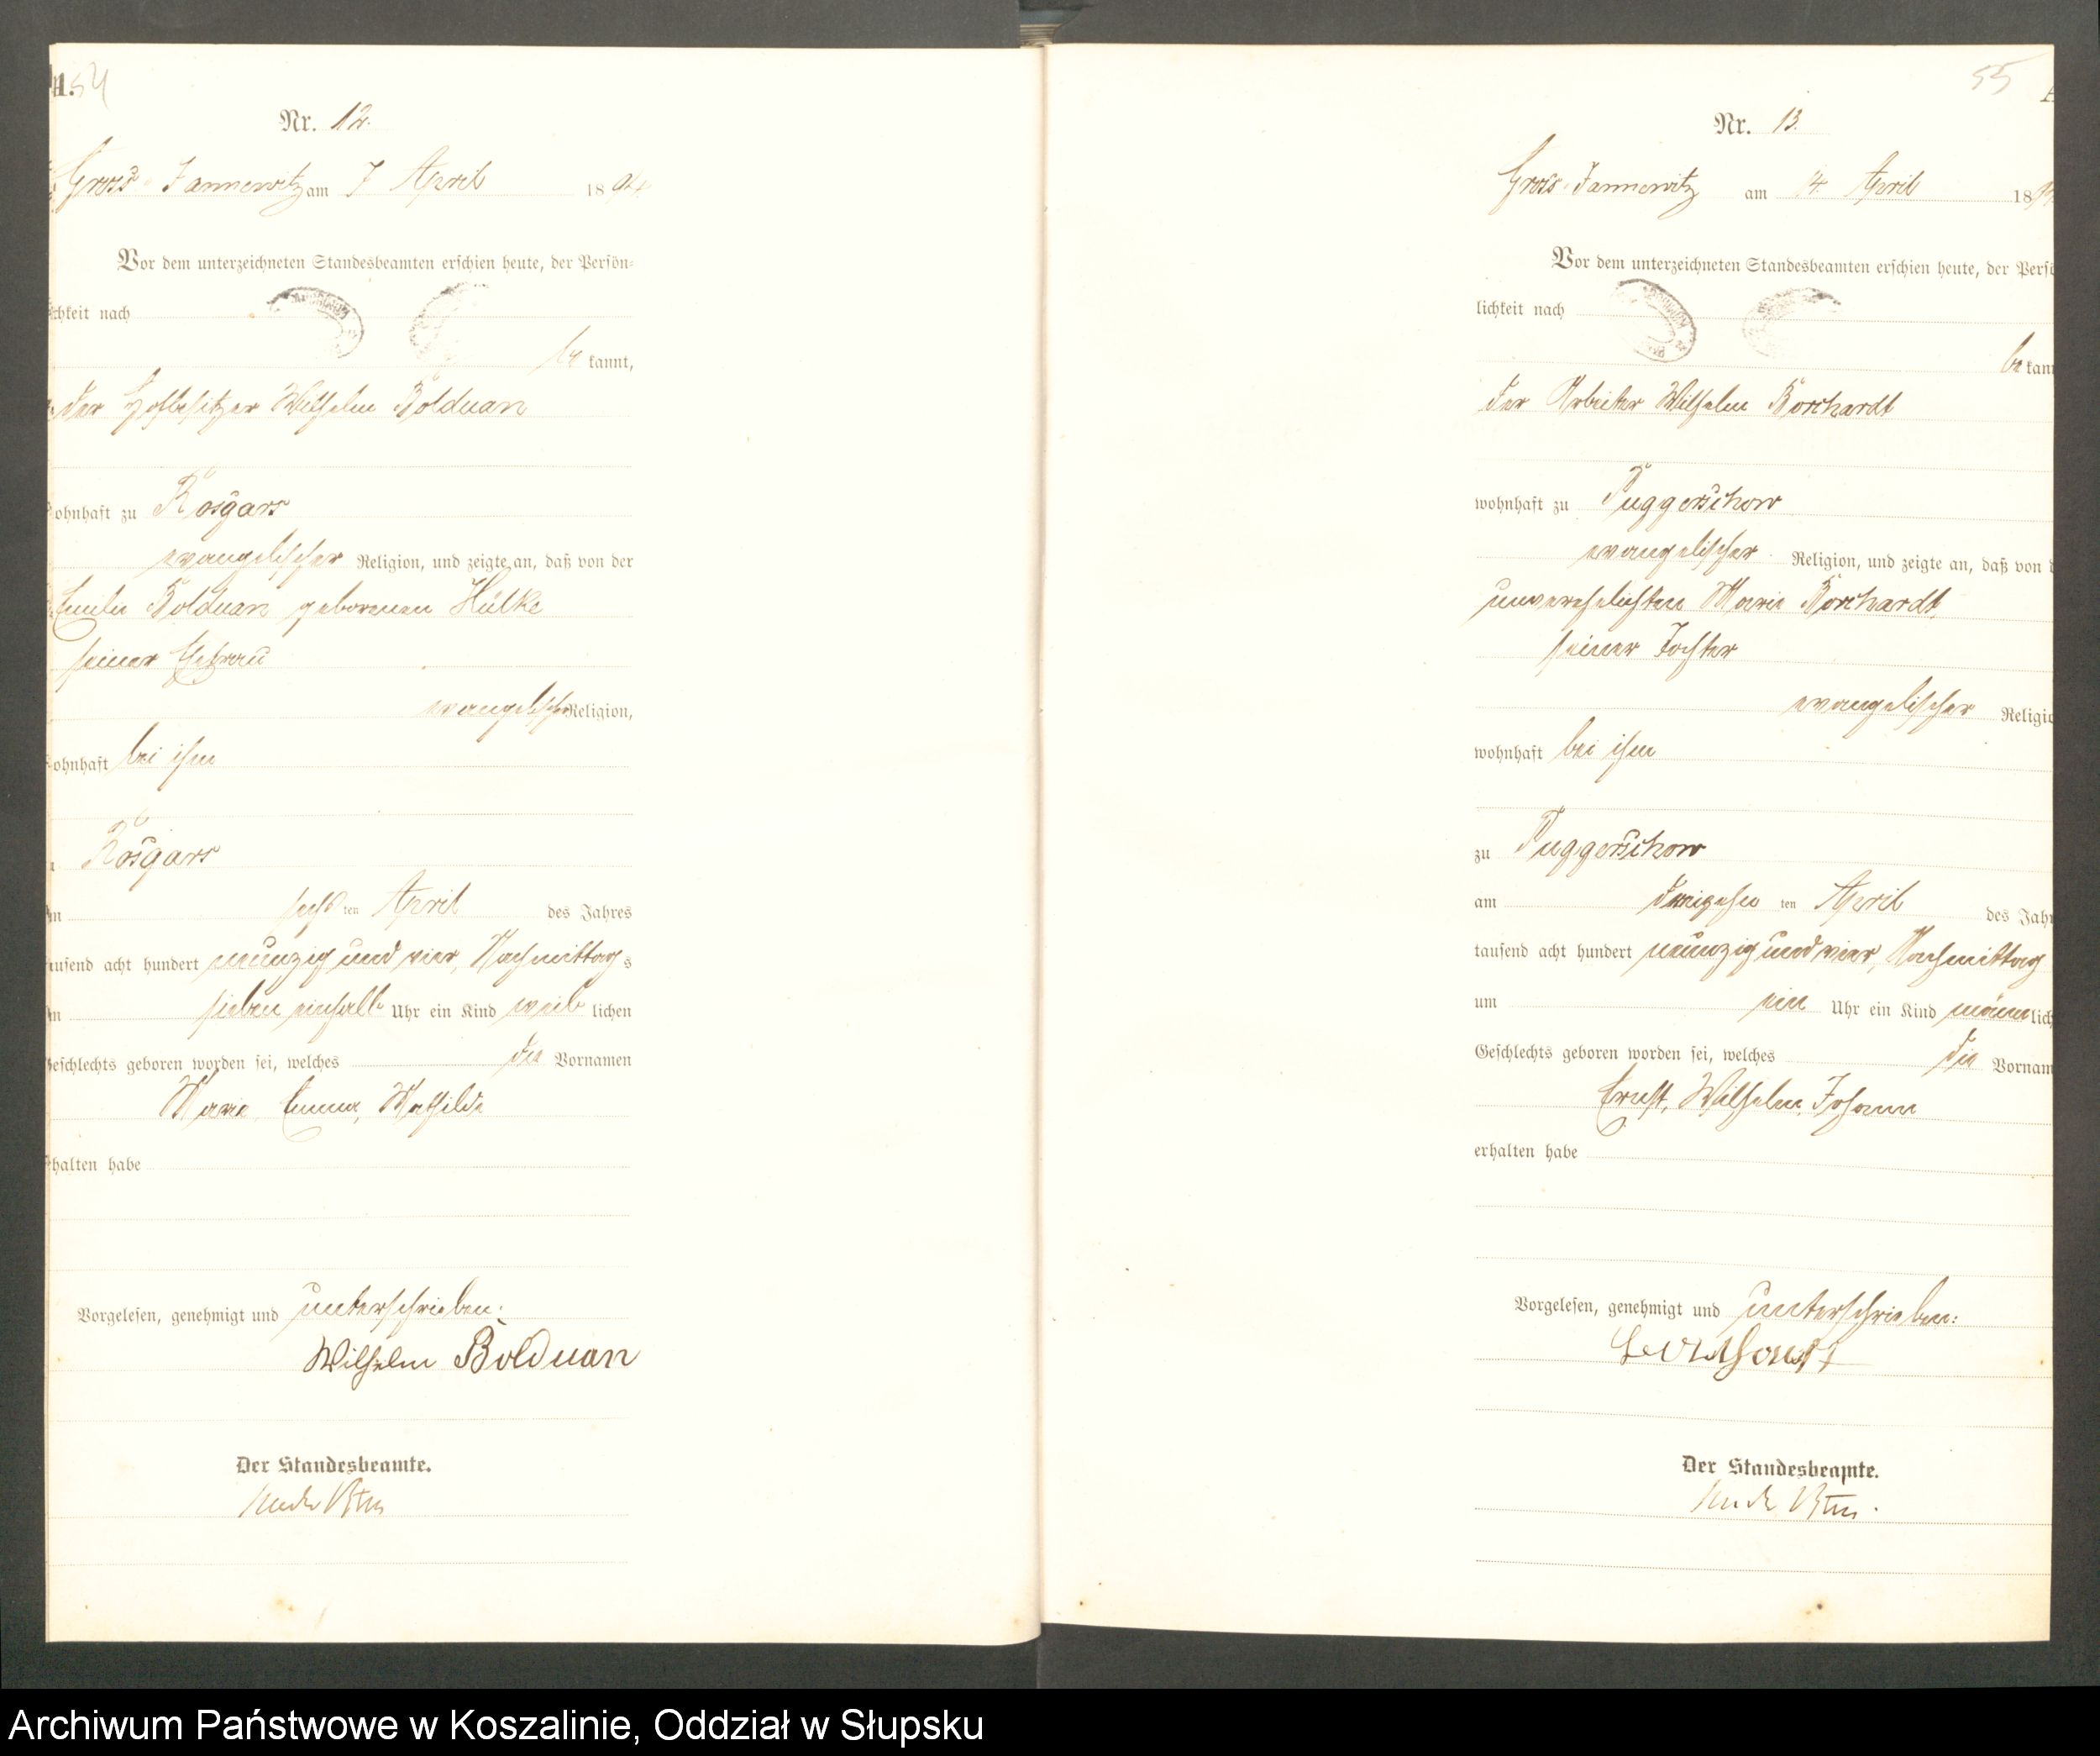 54
Nr. 12.
Gross Jannewitz am 7 April 1894.
Vor dem unterzeichneten Standesbeamten erschien heute, der Persön=
chkeit nach
be kannt,
der Hofbesitzer Wilhelm Bolduan
ohnhaft zu Rosgars
evangelischer Religion, und zeigte an, daß von der
Emilie Bolduan geborenen Hülke
seiner Ehefrau
evangelischer Religion,
ohnhaft bei ihm
Rosgars
sechs ten April des Jahres
ausend acht hundert neunzig und vier, Nachmittags
sieben einhalb Uhr ein Kind weib lichen
Geschlechts geboren worden sei, welches die Vornamen
Marie Emma, Mathilde
halten habe
Vorgelesen, genehmigt und unterschrieben:
Wilhelm Bolduan
Der Standesbeamte.
55
Nr. 13.
Gross-Jannewitz am 14. April 1894
Vor dem unterzeichneten Standesbeamten erschien heute, der Persö
lichkeit nach
be kann
der Arbeiter Wilhelm Borchardt
wohnhaft zu Puggerschow
evangelischer Religion, und zeigte an, daß von d
unverehelichten Marie Borchardt,
seiner Tochter
evangelischer Religio
wohnhaft bei ihm
zu Puggerschow
am dreizehn ten April des Jahr
tausend acht hundert neunzig und vier, Nachmittag
um ein Uhr ein Kind männ lich
Geschlechts geboren worden sei, welches die Vornam
Ernst, Wilhelm, Johann
erhalten habe
Vorgelesen, genehmigt und unterschrieben:
Der Standesbeamte.
Archiwum Państwowe w Koszalinie, Oddział w Słupsku